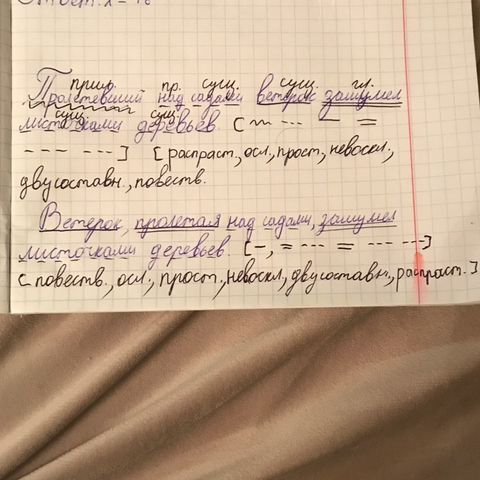 Ответ: x = 18
прич. пр. сущ. сущ. гл.
Пролетевший над садами ветерок зашумел
сущ. сущ.
листочками деревьев. [~~ --- — =
--- ---] [распраст., осл., прост., невоскл.,
двусоставн., повеств.
Ветерок, пролетая над садами, зашумел
листочками деревьев. [–, = --- = --- ---]
[повеств., осл., прост., невоскл., двусоставн., распраст.]